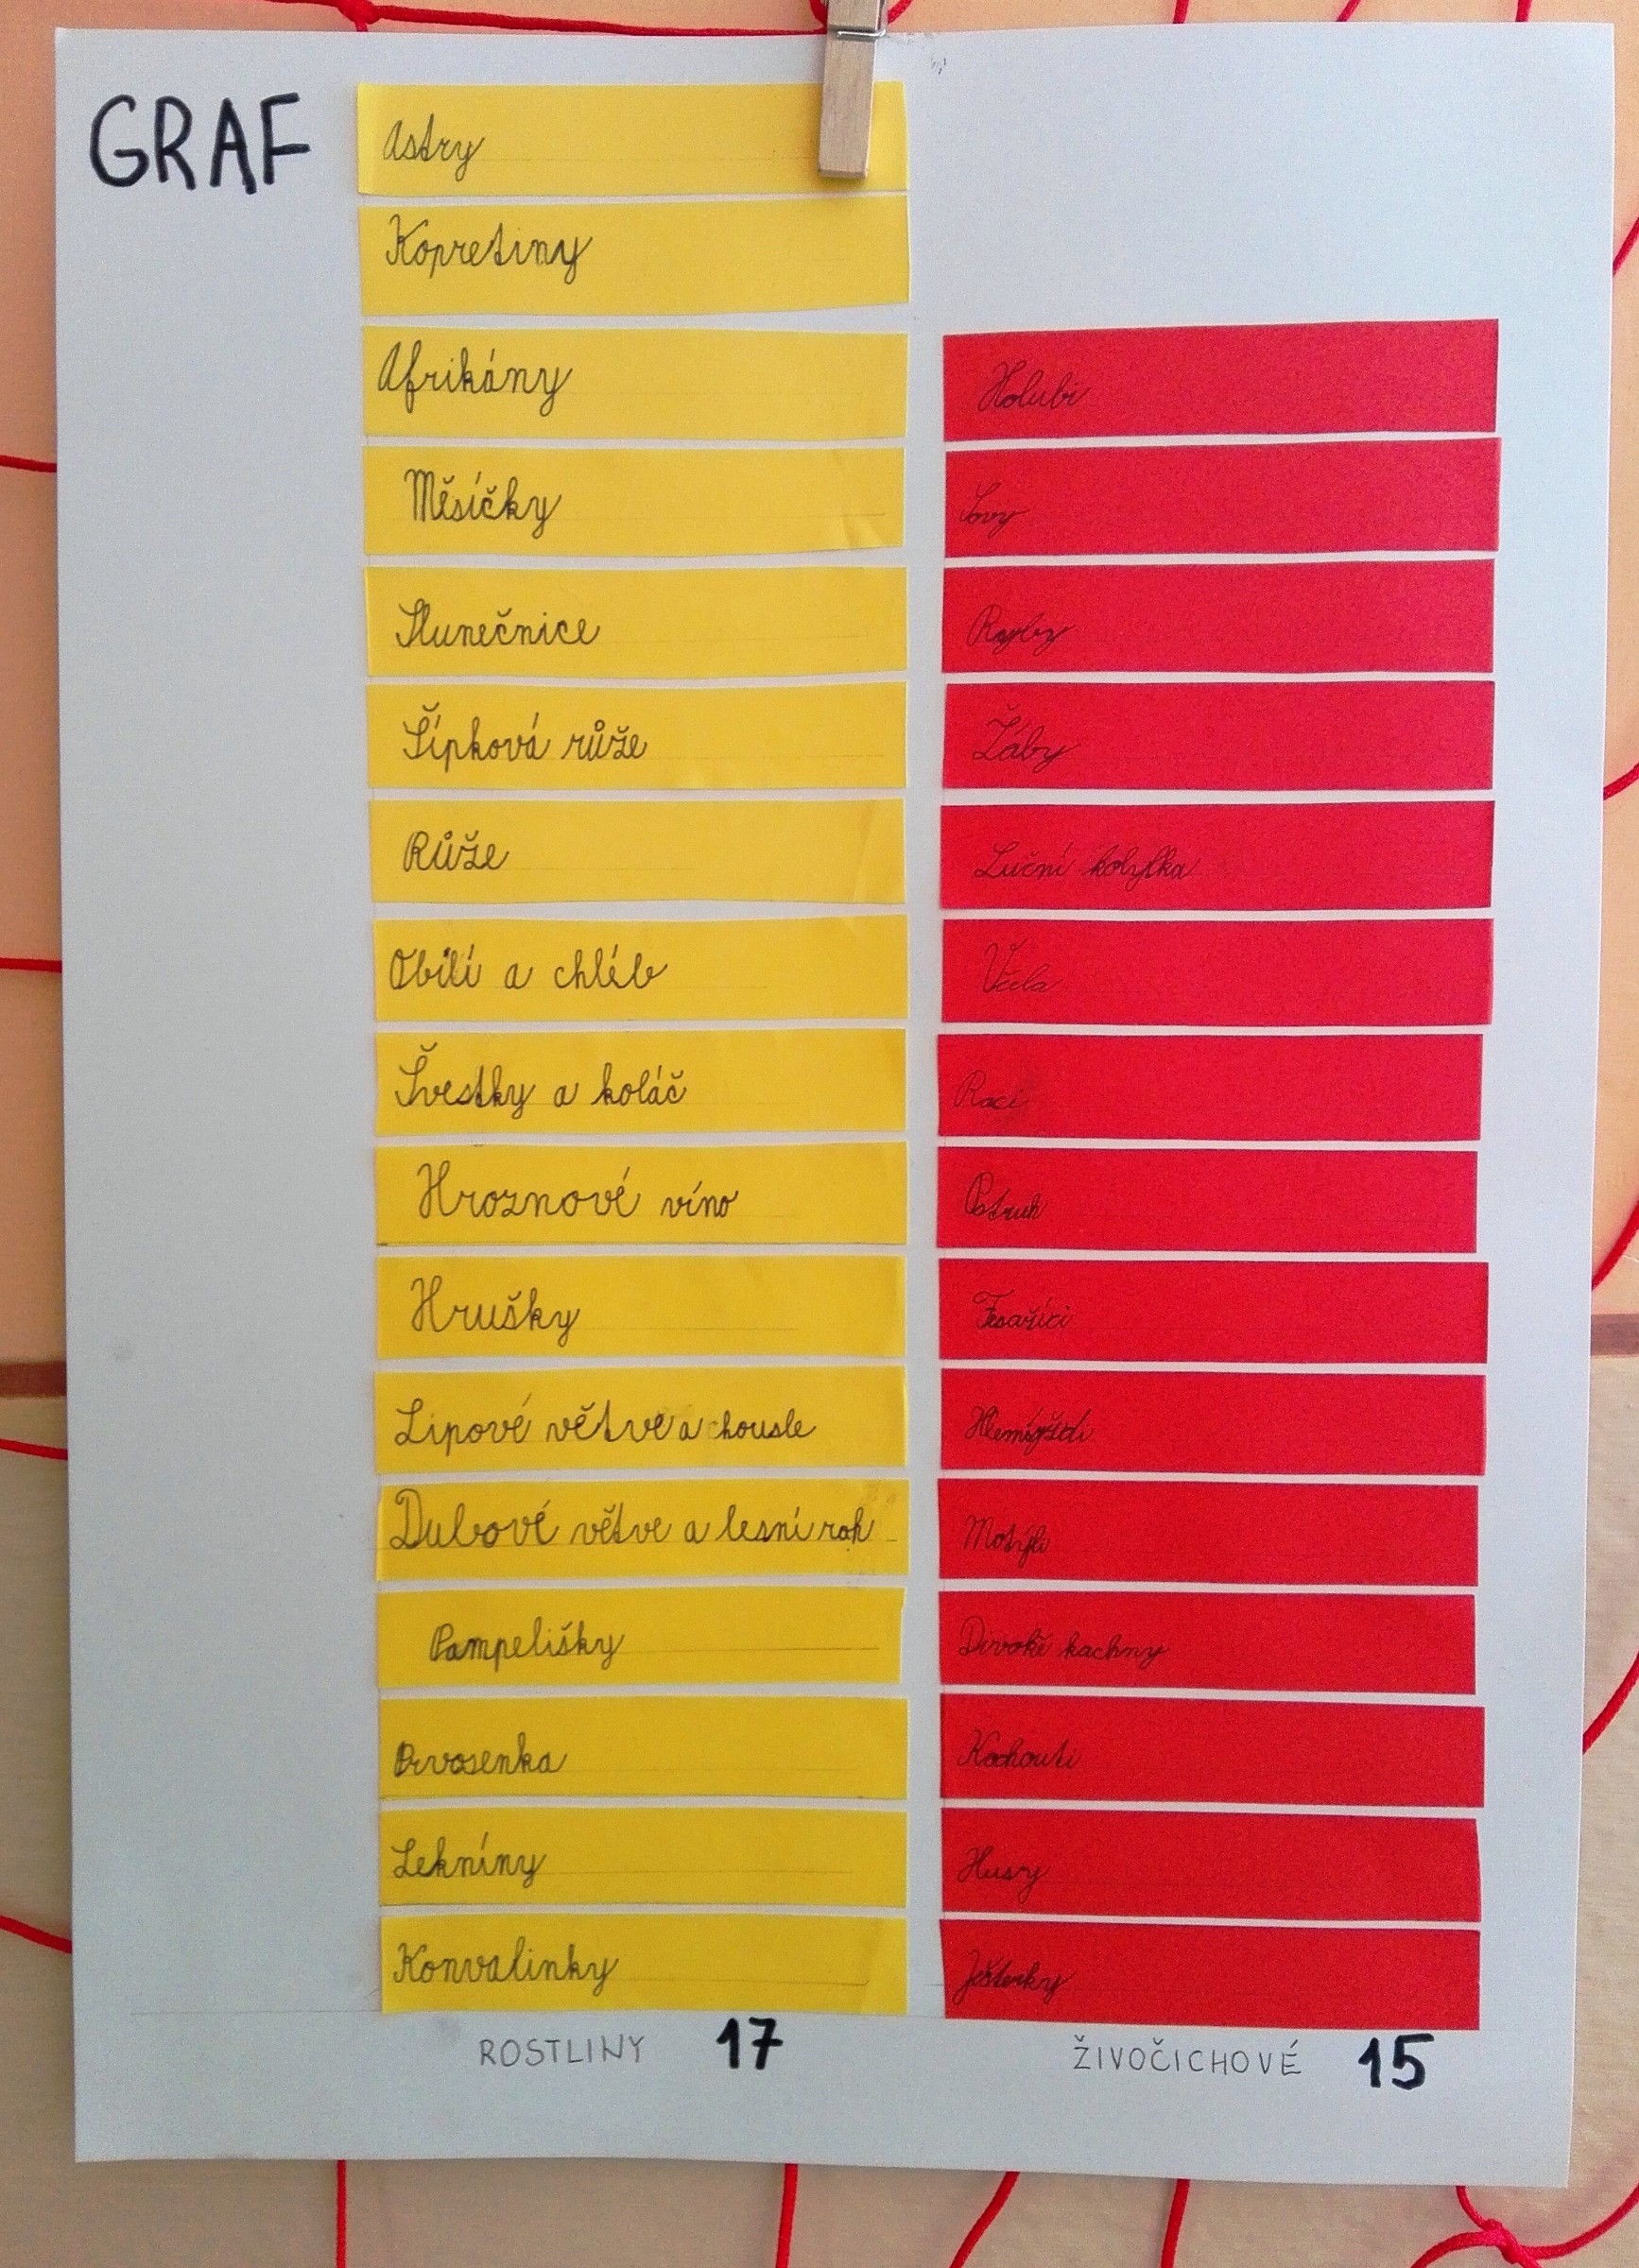 GRAF
Astry
Kopretiny
Afrikány
Měsíčky
Slunečnice
Šípková růže
Růže
Obilí a chléb
Švestky a koláč
Hroznové víno
Hrušky
Lipové větve a housle
Dubové větve a lesní roh
Pampelišky
Prvosenka
Lekníny
Konvalinky
ROSTLINY 17
Holubi
Sovy
Ryby
Žáby
Luční kobylka
Včela
Raci
Pstruh
Tesaříci
Hlemýždi
Motýli
Divoké kachny
Kohouti
Husy
Ještěrky
ŽIVOČICHOVÉ 15